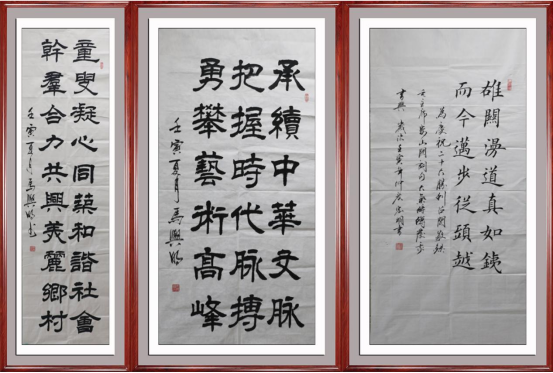 童叟凝心同築和諧社會
幹羣合力共興美麗鄉村
壬寅夏月馬興明書
承續中華文脉
把握時代脉搏
勇攀藝術高峰
壬寅夏月馬興明
雄關漫道真如鐵
而今邁步從頭越
為慶祝二十大勝利召開敬録
毛主席婁山關詞句